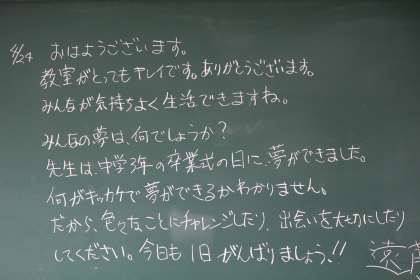 4/24 おはようございます。
教室がとってもキレイです。ありがとうございます。
みんなが気持ちよく生活できますね。
みんなの夢は、何でしょうか？
先生は、中学3年の卒業式の日に、夢ができました。
何がキッカケで夢ができるかわかりません。
だから、色々なことにチャレンジしたり、出会いを大切にしたり
してください。今日も1日がんばりましょう!!